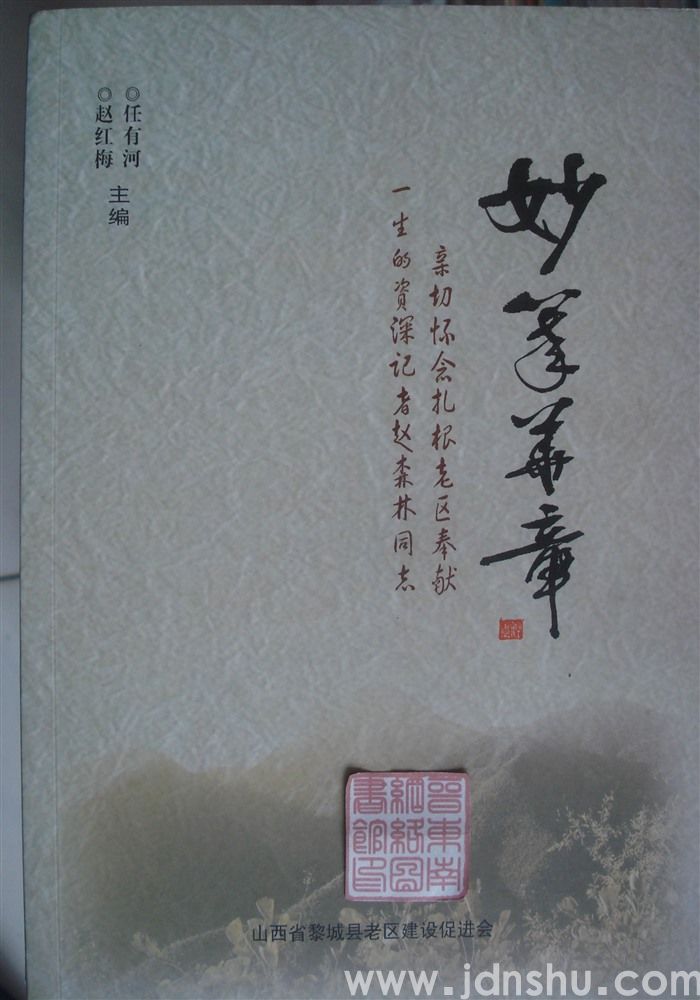 妙笔华章
亲切怀念扎根老区奉献
一生的资深记者赵森林同志
◎任有河
◎赵红梅
主编
晋东南
网络图
书馆印
山西省黎城县老区建设促进会
www.jdnshu.com